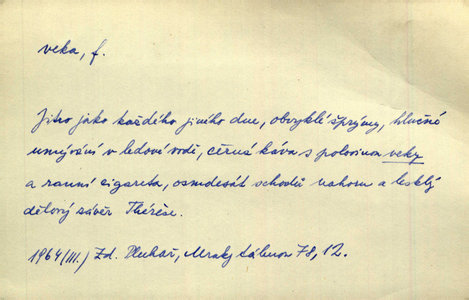 veka, f.
Jitro jako každého jiného dne, obvyklé šprýmy, hlučné
umývání v ledové vodě, černá káva s polovinou veky
a ranní cigareta, osmdesát schodů nahoru a lesklý
dělový závěr Thérèse.
1964 (III.) Zd. Pluhař, Mraky táhnou 78, 12.